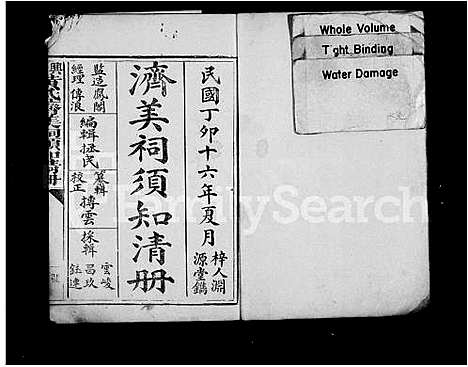 Whole Volume
Tight Binding
Water Damage
民國丁卯十六年夏月
梓人淵源堂鐫
濟美祠須知清册
監造鳳閣
經理傳浪
編輯拯民
纂輯
校正
搏雲
採輯
雲峻
昌玖
FamilySearch